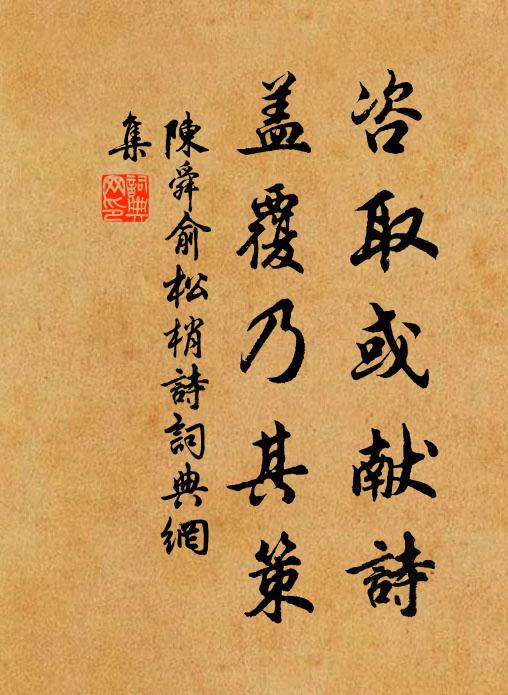 咨取或献詩
盖覆乃其策
陳舜俞松梢詩詞典網
集
詞典網印